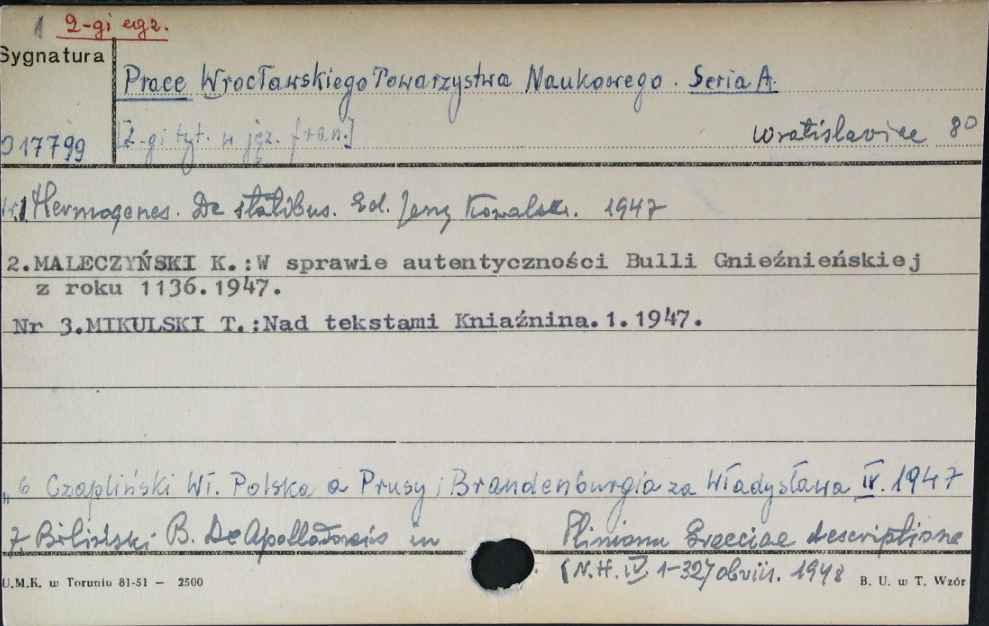 1 2-gi egz.
Sygnatura
Prace Wrocławskiego Towarzystwa Naukowego. Seria A.
017799 [2-gi tyt. w jęz. fran.] Wratislaviae 80
Nr 1 Hermogenes. De statibus. Ed. Jerzy Kowalski. 1947
2.MALECZYŃSKI K.:W sprawie autentyczności Bulli Gnieźnieńskiej
z roku 1136.1947.
Nr 3.MIKULSKI T.:Nad tekstami Kniaźnina.1.1947.
„ 6 Czapliński Wł. Polska a Prusy i Brandenburgia za Władysława IV. 1947
7. Biliński B. De Apollodoreis in Pliniana Graeciae descriptione
(N.H. IV 1-32) obviis. 1948
U.M.K. w Toruniu 81-51 — 2500
B. U. w T. Wzór